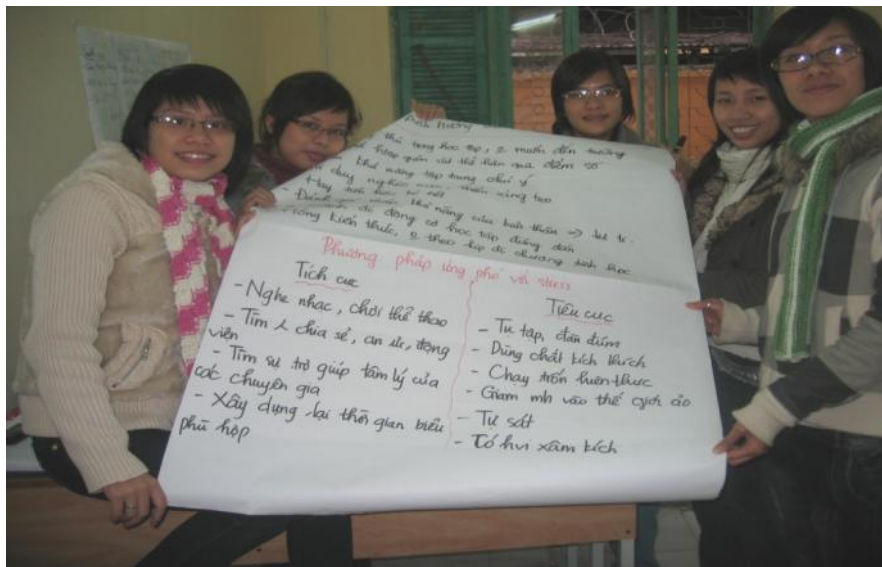 thú trong học tập, o muốn đến trường
quán và thể hiện qua điểm số
khả năng tập trung chú ý
duy nghèo sáng tạo
- Hay
- Đánh khả năng của bản thân → tự ti.
động cơ học tập đúng đắn
kiến thức, o theo kịp đc chương trình học
Phương pháp ứng phó với stress
Tích cực
- Nghe nhạc, chơi thể thao
- Tìm chia sẻ, an ủi, động
viên
- Tìm sự trợ giúp tâm lý của
các chuyên gia
- Xây dựng lại thời gian biểu
phù hợp
Tiêu cực
- Tụ tập, đàn đúm
- Dùng chất kích thích
- Chạy trốn hiện thực
- Giam mh vào thế giới ảo
- Tự sát
- Có hvi xâm kích